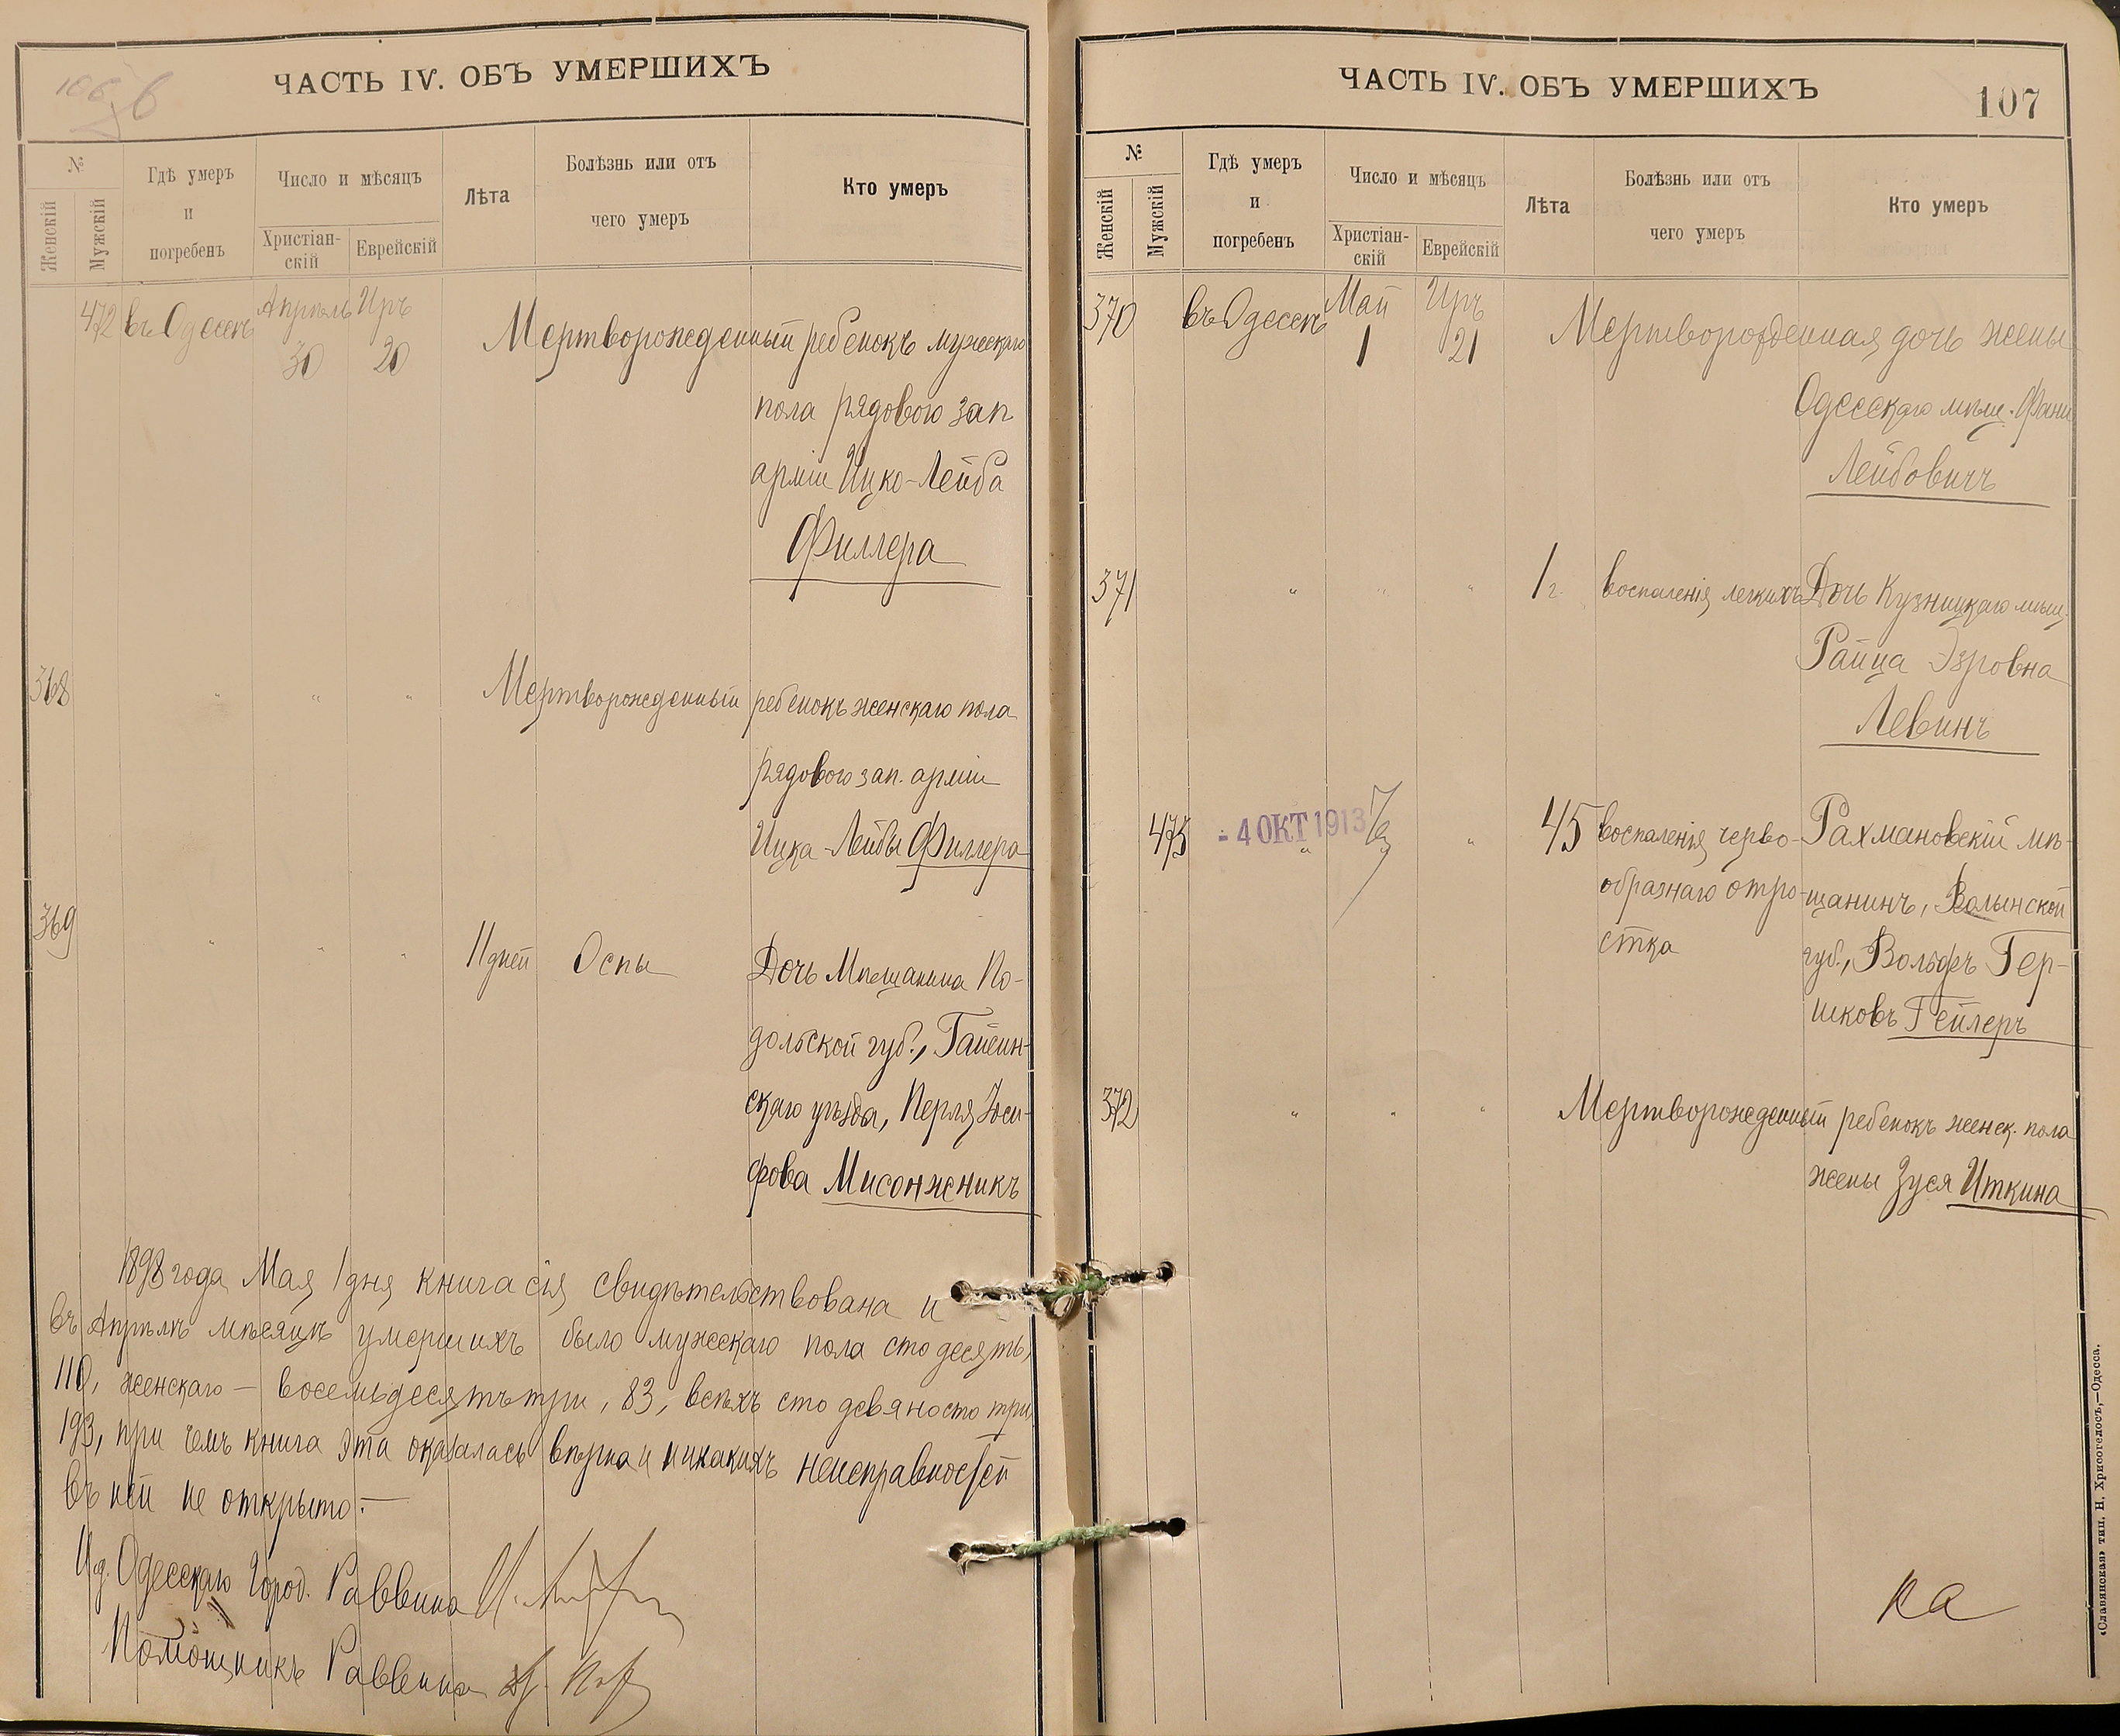 106 в
ЧАСТЬ IV. ОБЪ УМЕРШИХЪ
№
Женскій
Мужскій
Гдѣ умеръ
и
погребенъ
Число и мѣсяцъ
Христіан-
скій
Еврейскій
Лѣта
Болѣзнь или отъ
чего умеръ
Кто умеръ
472 въ Одессѣ Апрѣль Иръ
30 20
Мертворожденный ребенокъ мужскаго
пола рядового зап
арміи Ицко-Лейба
Филлера
368 " " " Мертворожденный ребенокъ женскаго пола
рядового зап. арміи
Ицка-Лейбы Филлера
369 " " " 11 дней Оспы Дочь Мѣщанина По-
дольской губ., Гайсин-
скаго уѣзда, Перля Іоси-
фова Мисонжникъ
1898 года Мая 1 дня книга сія свидѣтельствована и
въ Апрѣлѣ мѣсяцѣ умершихъ было мужескаго пола сто десять,
110, женскаго — восемьдесятъ три, 83, всѣхъ сто девяносто три,
193, при чемъ книга эта оказалась вѣрна и никакихъ неисправностей
въ ней не открыто.—
И д. Одесскаго Город. Раввина И.
Помощникъ Раввина
ЧАСТЬ IV. ОБЪ УМЕРШИХЪ
107
№
Женскій
Мужскій
Гдѣ умеръ
и
погребенъ
Число и мѣсяцъ
Христіан-
скій
Еврейскій
Лѣта
Болѣзнь или отъ
чего умеръ
Кто умеръ
370 въ Одессѣ Май Иръ
1 21
Мертворожденная дочь жены
Одесскаго мѣщ. Фани
Лейбовичъ
371 " " " 1 г. воспаленія легкихъ Дочь Кузницкаго мѣщ.
Райца Эзровна
Левинъ
475 - 4 ОКТ 1913 " " 45 воспаленія черво- Рахмановскій мѣ-
образнаго отро- щанинъ, Волынской
стка губ., Вольфъ Гер-
шковъ Гейлеръ
372 " " " Мертворожденный ребенокъ женск. пола
жены Зуся Иткина
ка
«Славянская» тип. Н. Хрисогелосъ,—Одесса.